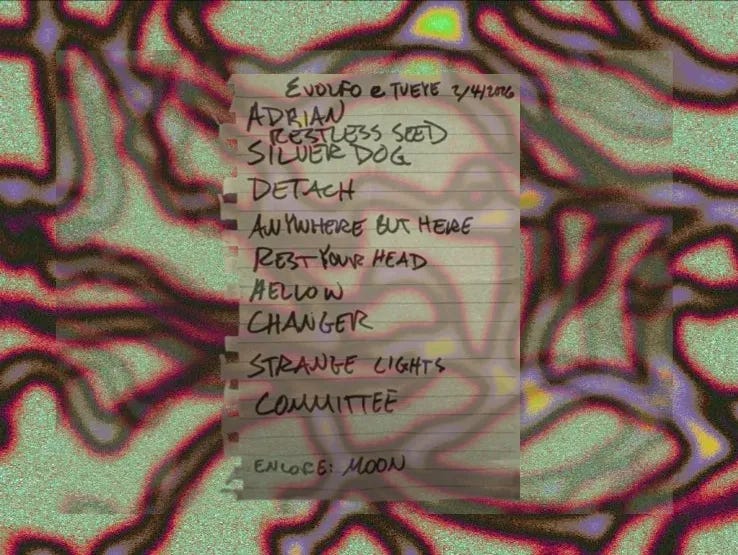 EVOLFO @ TVEYE 2/4/2026
ADRIAN
RESTLESS SEED
SILVER DOG
DETACH
ANYWHERE BUT HERE
REST YOUR HEAD
MELLOW
CHANGER
STRANGE LIGHTS
COMMITTEE
ENCORE: MOON